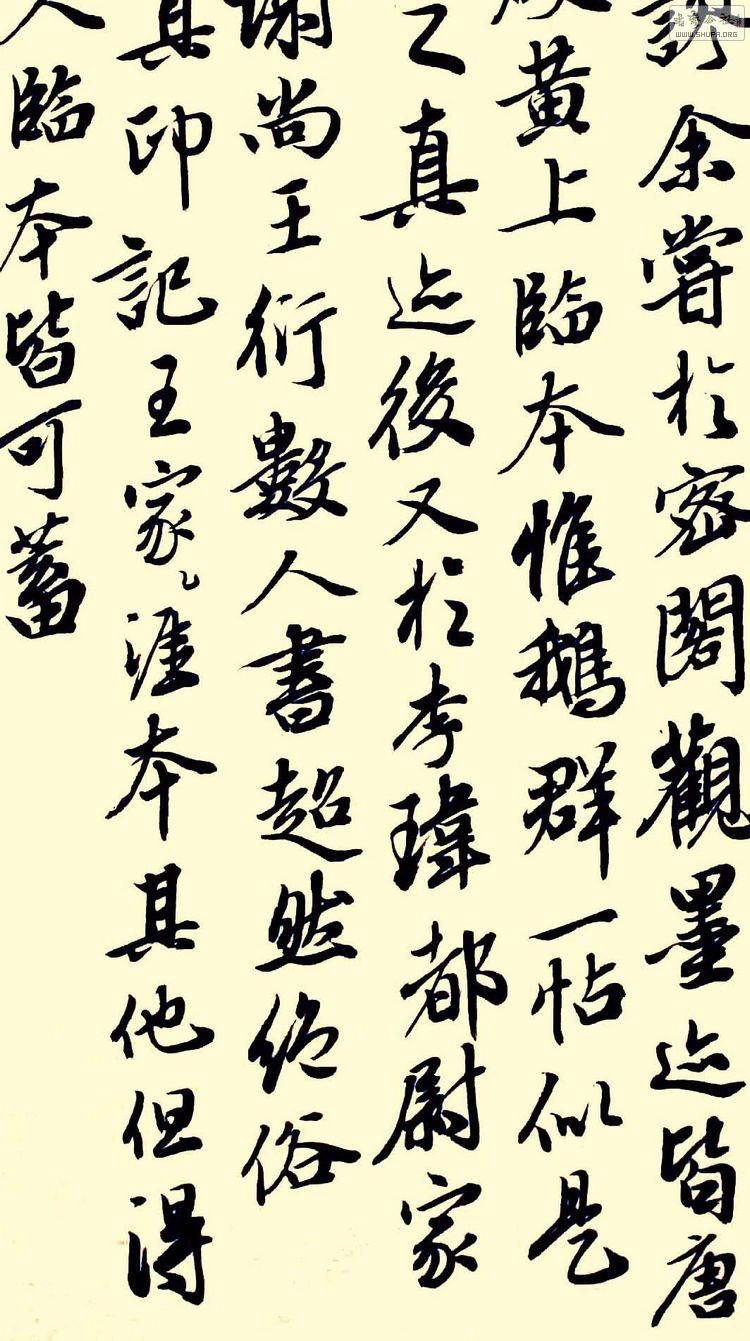 余嘗於密閣觀墨迹皆唐
黄上臨本惟鵝群一帖似是
之真迹後又於李瑋都尉家
謝尚王衍數人書超然絶俗
其印記王家〻涯本其他但得
人臨本皆可蓄
WWW.SHUFA.ORG